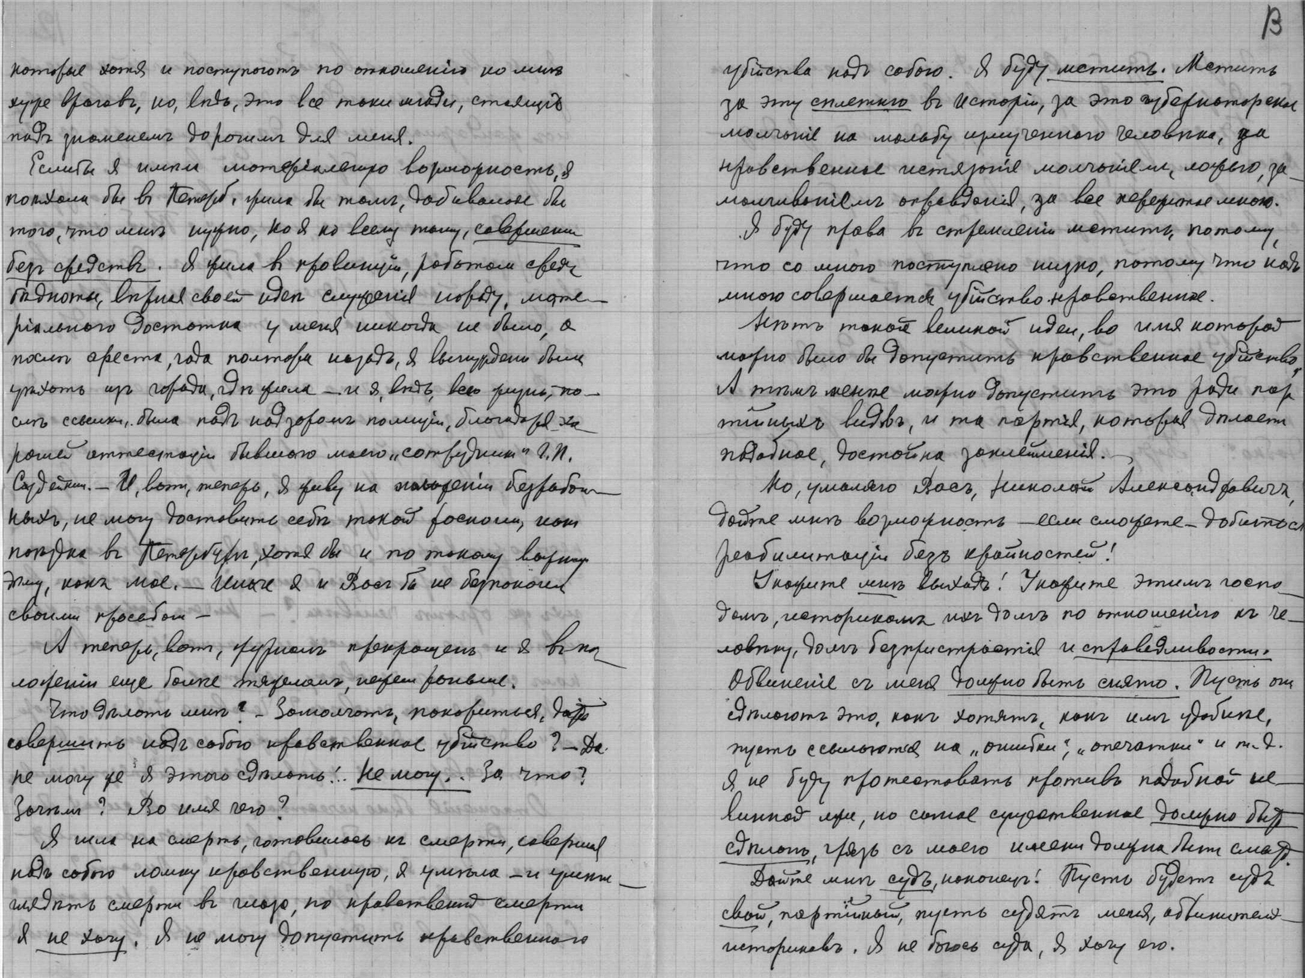 которые хотя и поступаютъ по отношенію ко мнѣ
хуже враговъ, но, вѣдь, это все таки люди, стоящіе
подъ знаменемъ дорогимъ для меня.
Еслибы я имѣла матеріальную возможность, я
поѣхала бы въ Петерб., жила бы тамъ, добивалась бы
того, что мнѣ нужно, но я ко всему тому, совершенно
безъ средствъ. Я жила въ провинціи, работала среди
бѣдноты, вѣрная своей идеѣ служенія народу, мате-
ріальнаго достатка у меня никогда не было, а
послѣ ареста, года полтора назадъ, я вынуждена была
уѣхать изъ города, гдѣ жила — и я, вѣдь, всю жизнь, по-
слѣ ссылки, была подъ надзоромъ полиціи, благодаря хо-
рошей аттестаціи бывшаго моего „сотрудника" Г.П.
Судейкин. — И, вотъ, теперь, я живу на положеніи безработ-
ныхъ, не могу доставить себѣ такой роскоши, какъ
поѣздка въ Петербургъ, хотя бы и по такому важному
дѣлу, какъ мое. — Иначе я и Васъ бы не безпокоила
своими просьбами —
А теперь, вотъ, журналъ прекращенъ и я въ по-
ложеніи еще болѣе тяжеломъ, нежели раньше.
Что дѣлать мнѣ? — Замолчать, покориться, дать
совершить надъ собою нравственное убійство? — Да
не могу же я этого сдѣлать!.. Не могу.. За что?
Зачѣмъ? Во имя чего?
Я шла на смерть, готовилась къ смерти, совершая
надъ собою ломку нравственную, я умѣла — и умѣю —
глядѣть смерти въ глаза, но нравственной смерти
я не хочу. Я не могу допустить нравственнаго
B
убійства надъ собою. Я буду мстить. Мстить
за эту сплетню въ исторіи, за это губернаторское
молчаніе на мольбу измученнаго человѣка, за
нравственное истязаніе молчаніемъ, ложью, за-
малчиваніемъ оправданія, за все пережитое мною.
Я буду права въ стремленіи мстить, потому,
что со мною поступлено низко, потому что надъ
мною совершается убійство нравственное.
Нѣтъ такой великой идеи, во имя которой
можно было бы допустить нравственное убійство.
А тѣмъ менѣе можно допустить это ради пар-
тійныхъ видовъ, и та партія, которая дѣлаетъ
подобное, достойна заклейменія. —
Но, умоляю Васъ, Николай Александровичъ,
дайте мнѣ возможность — если сможете — добиться
реабилитаціи безъ крайностей!
Укажите мнѣ выходъ! Укажите этимъ госпо-
дамъ, историкамъ ихъ долгъ по отношенію къ че-
ловѣку, долгъ безпристрастія и справедливости.
Обвиненіе съ меня должно быть снято. Пусть они
сдѣлаютъ это, какъ хотятъ, какъ имъ удобнѣе,
пусть ссылаются на „ошибки", „опечатки" и т.д.
Я не буду протестовать противъ подобной не-
винной лжи, но самое существенное должно быть
сдѣлано, грязь съ моего имени должна быть смыта.
Дайте мнѣ судъ, наконецъ! Пусть будетъ судъ
свой, партійный, пусть судятъ меня, обвинителя
историковъ. Я не боюсь суда, я хочу его.